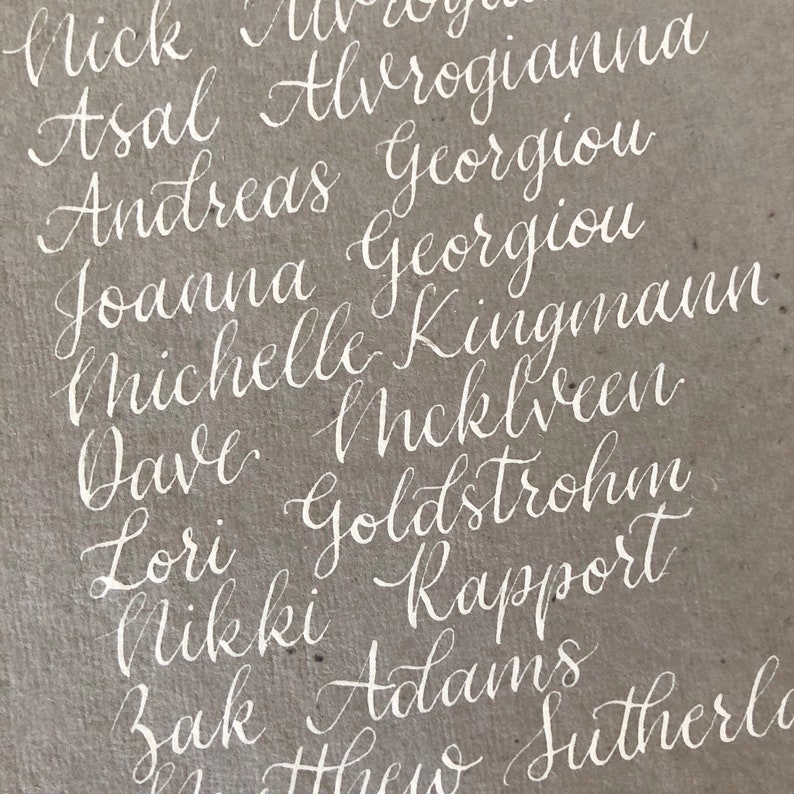 Nick
Asal Alvrogianna
Andreas Georgiou
Joanna Georgiou
Michelle Kingmann
Dave McKlveen
Lori Goldstrohm
Nikki Rapport
Zak Adams
Matthew